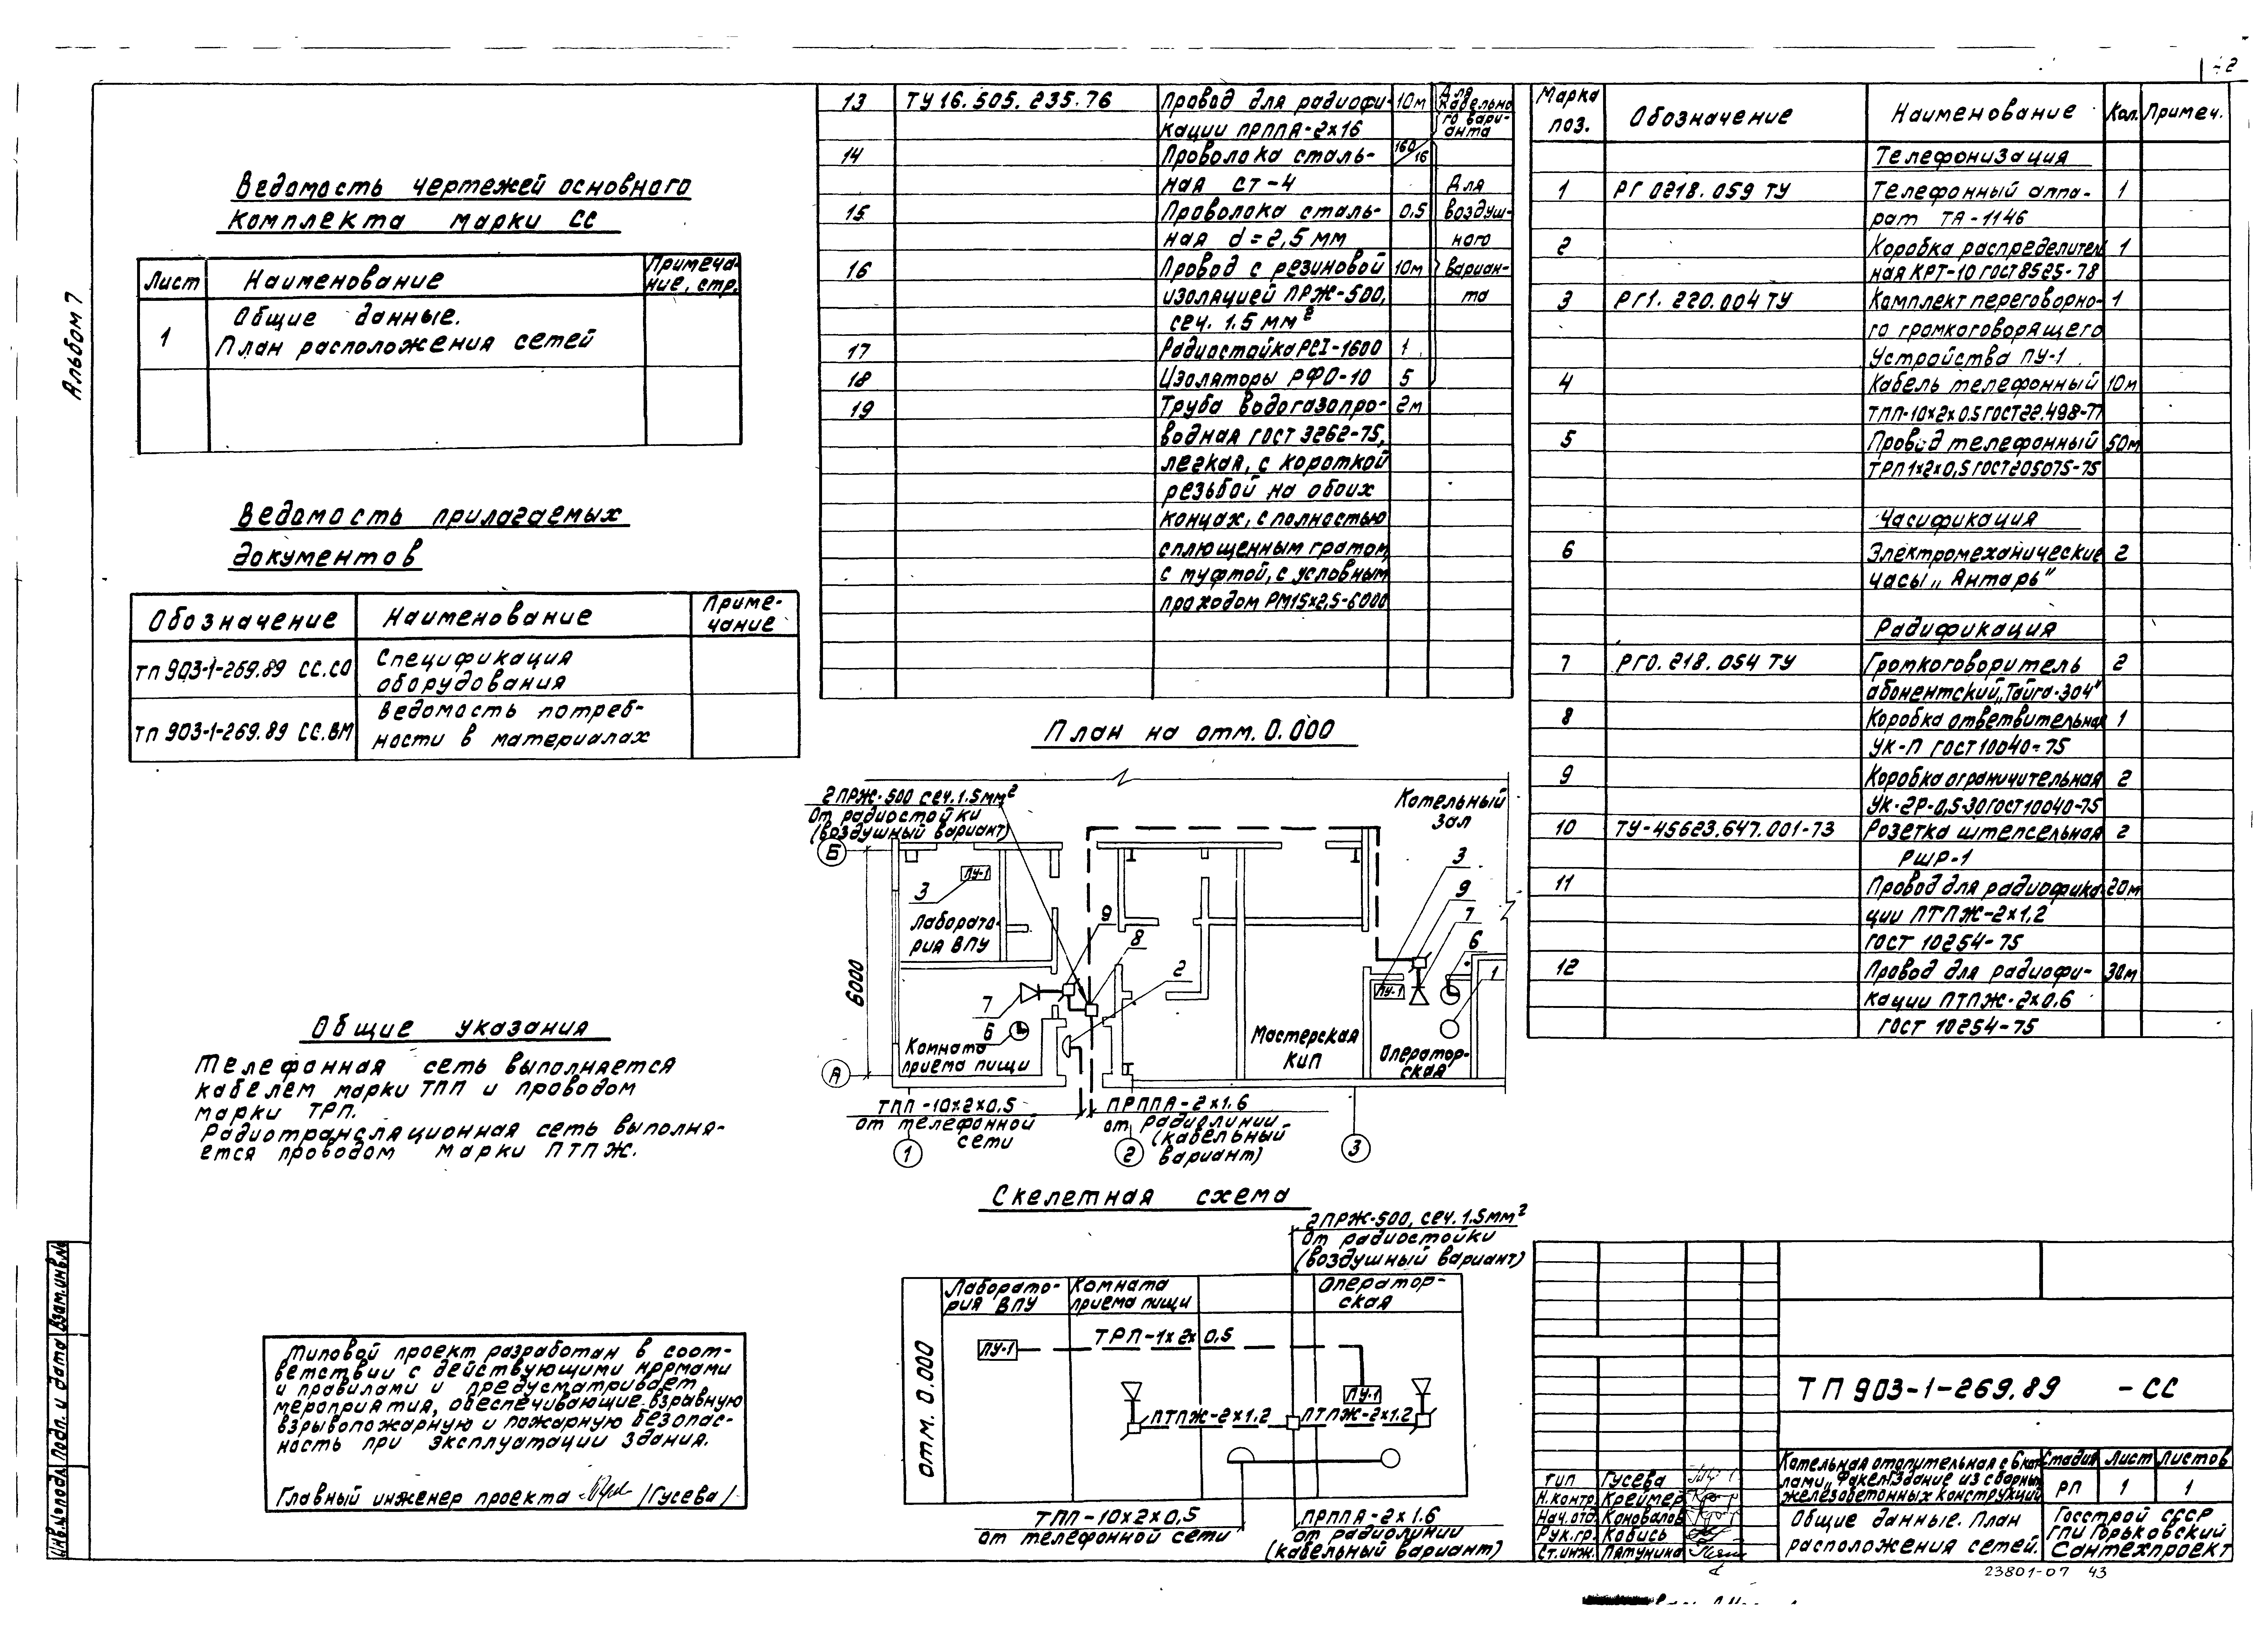 Альбом 7
Ведомость чертежей основного
комплекта марки СС
Лист Наименование Примеча-
ние, стр.
1 Общие данные.
План расположения сетей
Ведомость прилагаемых
документов
Обозначение Наименование Приме-
чание
ТП 903-1-269.89 СС.СО Спецификация
оборудования
ТП 903-1-269.89 СС.ВМ Ведомость потреб-
ности в материалах
Общие указания
Телефонная сеть выполняется
кабелем марки ТПП и проводом
марки ТРП.
Радиотрансляционная сеть выполня-
ется проводом марки ПТПЖ.
Типовой проект разработан в соот-
ветствии с действующими нормами
и правилами и предусматривает
мероприятия, обеспечивающие взрывную
взрывопожарную и пожарную безопас-
ность при эксплуатации здания.
Главный инженер проекта /Гусева/
Инв.№подл. Подп. и дата Взам.инв.№
13 ТУ 16.505.235.76 Провод для радиофи- 10м Для
кабельно
кации ПРППА-2х16 го вари-
анта
14 Проволока сталь- 160/16
ная ст-4 Для
15 Проволока сталь- 0,5 воздуш-
ная d=2,5 мм ного
16 Провод с резиновой 10м вариан-
изоляцией ПРЖ-500, та
сеч. 1.5 мм²
17 Радиостойка РСI-1600 1
18 Изоляторы РФО-10 5
19 Труба водогазопро- 2м
водная ГОСТ 3262-75,
легкая, с короткой
резьбой на обоих
концах, с полностью
сплющенным гратом,
с муфтой, с условным
проходом РМ15х2,5-6000
План на отм. 0.000
2ПРЖ-500 сеч.1.5мм²
От радиостойки
(воздушный вариант)
Котельный
зал
Б
3
ПУ-1
Лаборато-
рия ВПУ
9
8
2
7
6
Комната
приема пищи
6000
А
Мастерская
КИП
3
9
7
6
1
ПУ-1
Оператор-
ская
ТПП-10х2х0,5
от телефонной
сети
ПРППА-2х1.6
от радиолинии
(кабельный
вариант)
1
2
3
Скелетная схема
2ПРЖ-500, сеч. 1.5мм²
От радиостойки
(воздушный вариант)
Лаборато-
рия ВПУ
Комната
приема пищи
Оператор-
ская
отм. 0.000
ТРП-1х2х0,5
ПУ-1
ПУ-1
ПТПЖ-2х1.2
ПТПЖ-2х1.2
ТПП-10х2х0,5
от телефонной сети
ПРППА-2х1.6
от радиолинии
(кабельный вариант)
Марка
поз. Обозначение Наименование Кол. Примеч.
Телефонизация
1 РГ 0218.059 ТУ Телефонный аппа- 1
рат ТА-1146
2 Коробка распределитель 1
ная КРТ-10 ГОСТ 8525-78
3 РГ1.220.004 ТУ Комплект переговорно- 1
го громкоговорящего
Устройства ПУ-1
4 Кабель телефонный 10м
ТПП-10х2х0.5 ГОСТ 22.498-77
5 Провод телефонный 50м
ТРП 1х2х0,5 ГОСТ 205075-75
Часификация
6 Электромеханические 2
часы „Антарь"
Радификация
7 РГ0.218.054 ТУ Громкоговоритель 2
абонентский „Тайга-304"
8 Коробка ответвительная 1
УК-П ГОСТ 10040-75
9 Коробка ограничительная 2
УК-2Р-0,5-30 ГОСТ 10040-75
10 ТУ-45623.647.001-73 Розетка штепсельная 2
РШР-1
11 Провод для радиофика- 20м
ции ПТПЖ-2х1,2
ГОСТ 10254-75
12 Провод для радиофи- 30м
кации ПТПЖ-2х0.6
ГОСТ 10254-75
ТП 903-1-269.89 -СС
ГИП Гусева
Н.контр. Креймер
Нач.отд. Коновалов
Рук.гр. Кабись
Ст.инж. Пятунина
Котельная отопительная с 8 кот-
лами „Факел". Здание из сборных
железобетонных конструкций
Стадия Лист Листов
РП 1 1
Общие данные. План
расположения сетей.
Госстрой СССР
ГПИ Горьковский
Сантехпроект
23801-07 43